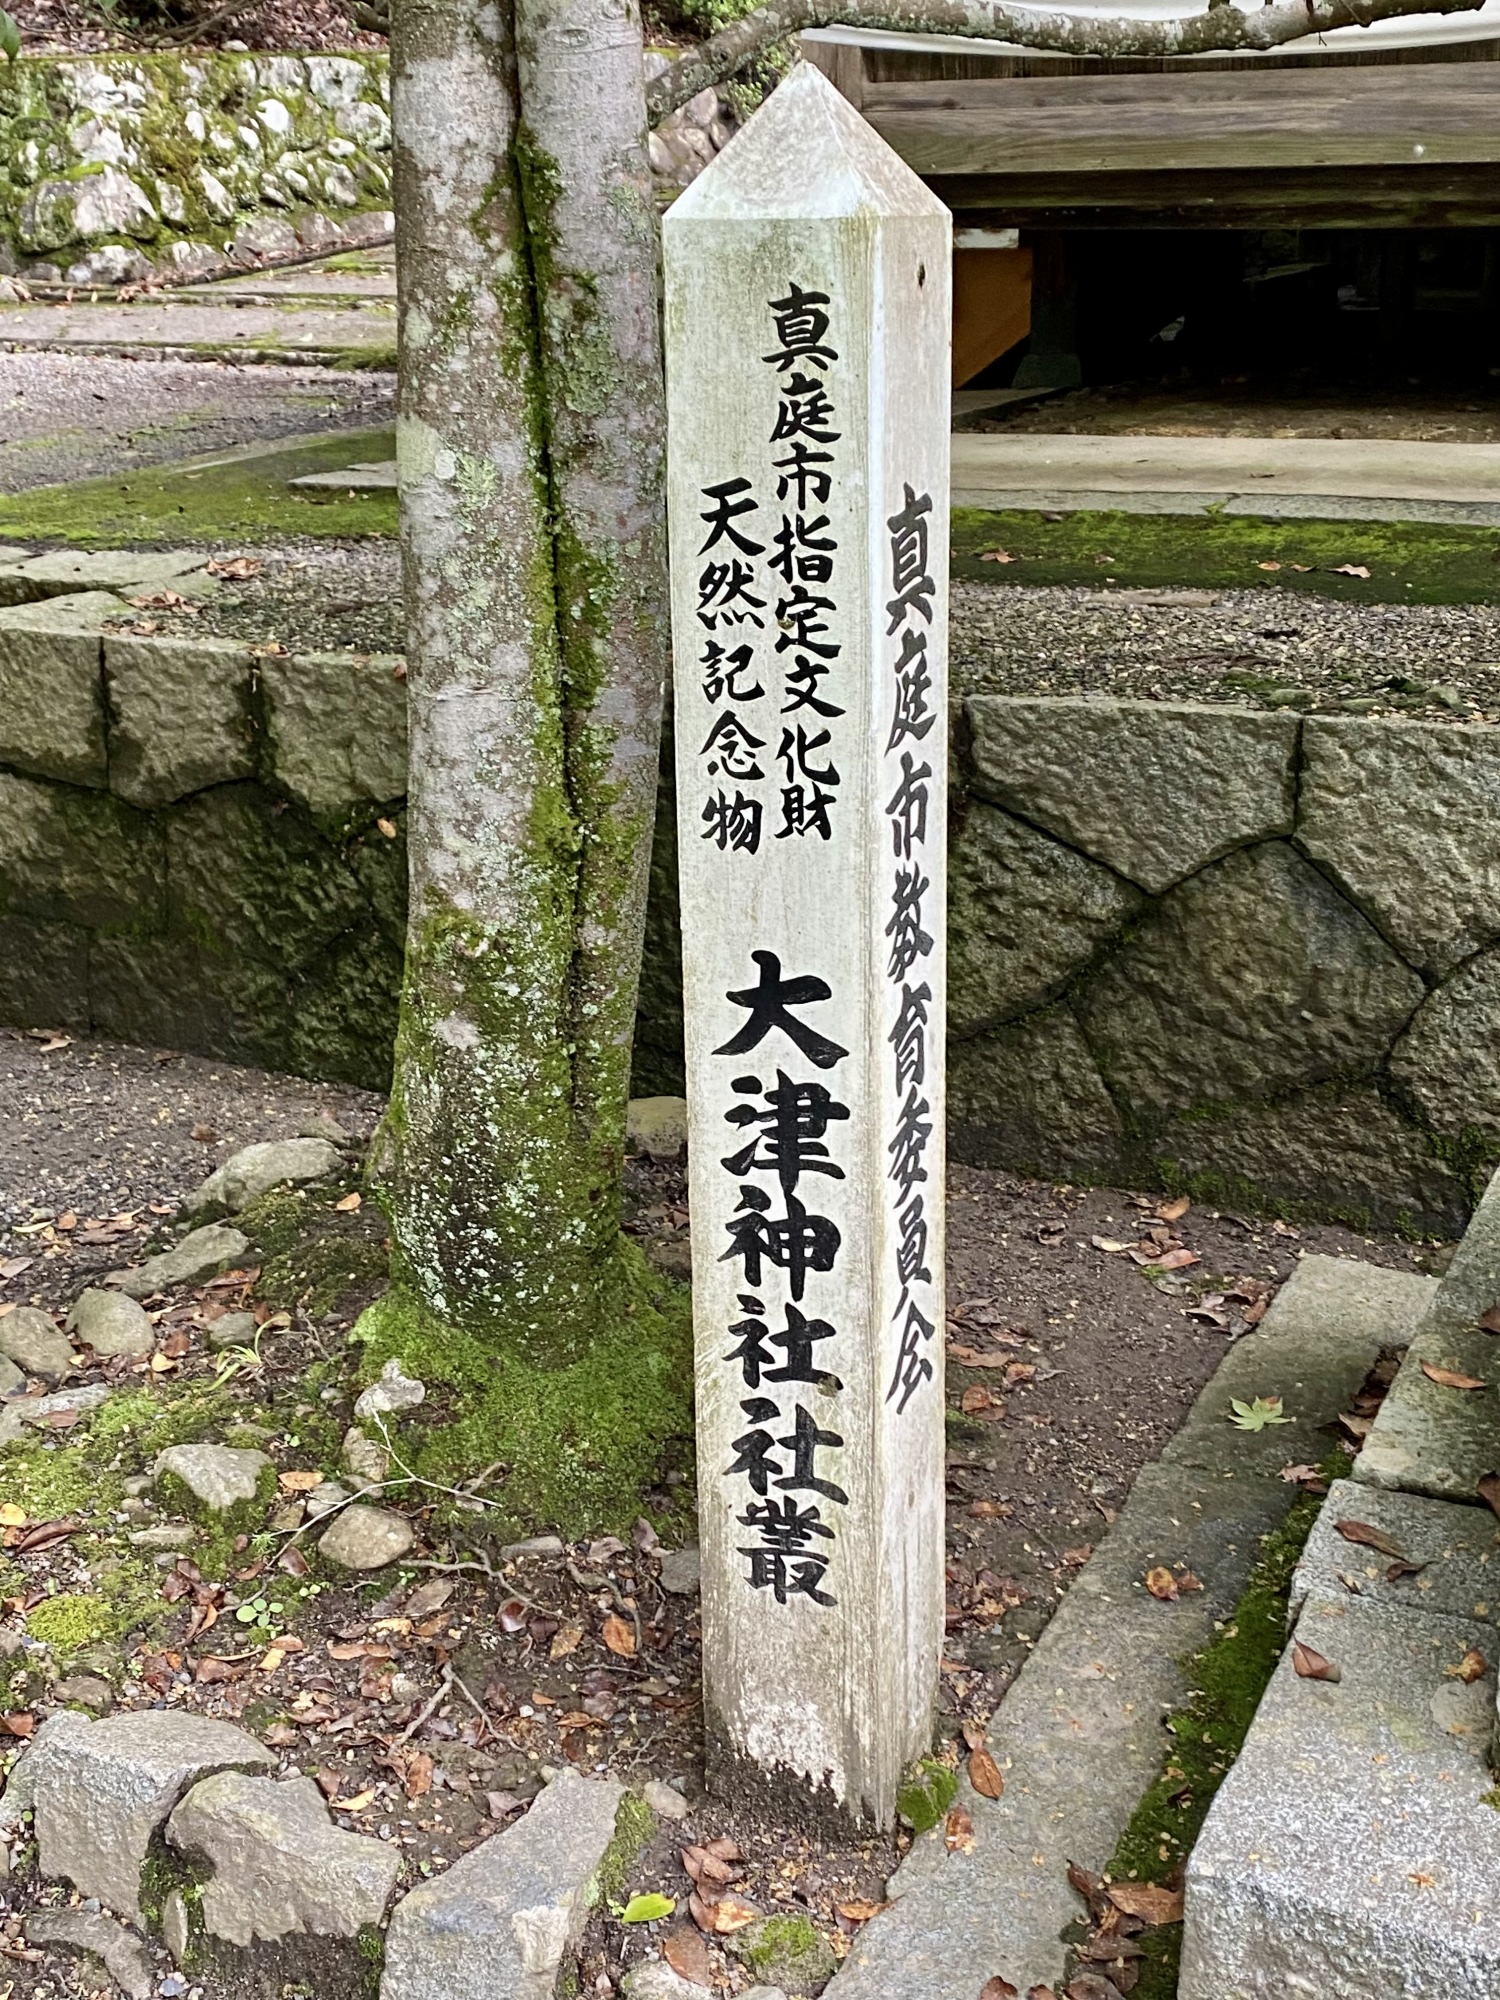 真庭市指定文化財
天然記念物
大津神社社叢
真庭市教育委員会